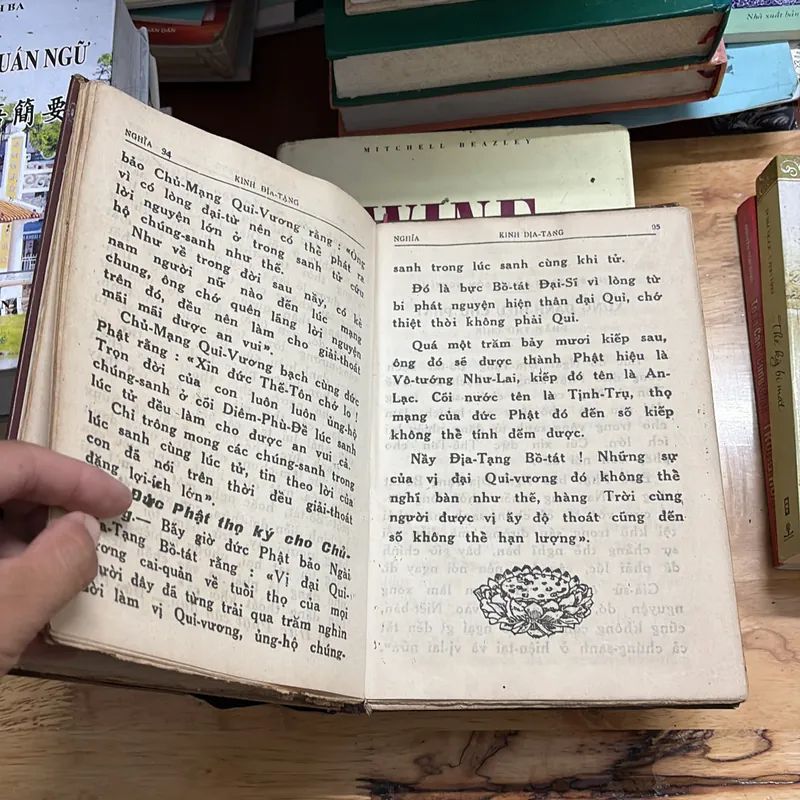 H BA
UÁN NGỮ
簡要
DÂN DÂN
Nhà xuất bản
MITCHELL BEAZLEY
WINE
NGHĨA 94
KINH ĐỊA-TẠNG
bảo Chủ-Mạng Qui-Vương rằng : «Ông
vì có lòng đại-từ nên có thể phát ra
lời nguyện lớn ở trong sanh tử cứu
hộ chúng-sanh như thế.
Như về trong đời sau này, có kẻ
nam người nữ nào đến lúc mạng
chung, ông chớ quên lãng lời nguyện
trên đó, đều nên làm cho giải-thoát
mãi mãi được an vui».
Chủ-Mạng Qui-Vương bạch cùng đức
Phật rằng : «Xin đức Thế-Tôn chớ lo !
Trọn đời của con luôn luôn ủng-hộ
chúng-sanh ở cõi Diêm-Phù-Đề lúc sanh
lúc tử đều làm cho được an vui cả.
Chỉ trông mong các chúng-sanh trong
lúc sanh cùng lúc tử, tin theo lời của
con đã nói trên thời đều giải-thoát
đặng lợi-ích lớn».
Đức Phật thọ ký cho Chủ-
ng.— Bấy giờ đức Phật bảo Ngài
-Tạng Bồ-tát rằng : «Vị đại Qui-
ương cai-quản về tuổi thọ của mọi
gười đây đã từng trải qua trăm nghìn
đời làm vị Qui-vương, ủng-hộ chúng-
NGHĨA
KINH ĐỊA-TẠNG
95
sanh trong lúc sanh cùng khi tử.
Đó là bực Bồ-tát Đại-Sĩ vì lòng từ
bi phát nguyện hiện thân đại Quỉ, chớ
thiệt thời không phải Quỉ.
Quá một trăm bảy mươi kiếp sau,
ông đó sẽ được thành Phật hiệu là
Vô-tướng Như-Lai, kiếp đó tên là An-
Lạc. Cõi nước tên là Tịnh-Trụ, thọ
mạng của đức Phật đó đến số kiếp
không thể tính đếm được.
Nầy Địa-Tạng Bồ-tát ! Những sự
của vị đại Qui-vương đó không thể
nghĩ bàn như thế, hàng Trời cùng
người được vị ấy độ thoát cũng đến
số không thể hạn lượng».
The kỷ bí mật